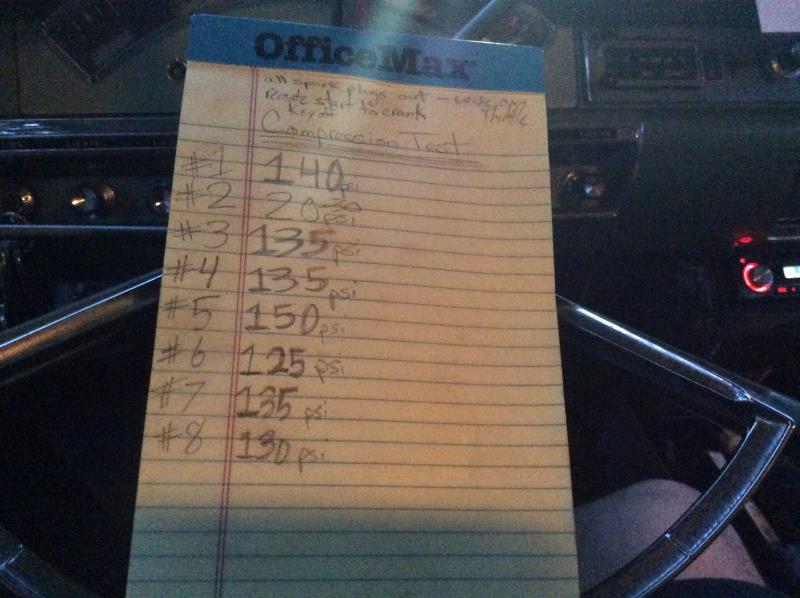 OfficeMax
all spark plugs out - wide open
remote start to crank Throttle
Key off
Compression Test
#1 140 psi
#2 20 psi
#3 135 psi
#4 135 psi
#5 150 psi
#6 125 psi
#7 135 psi
#8 130 psi